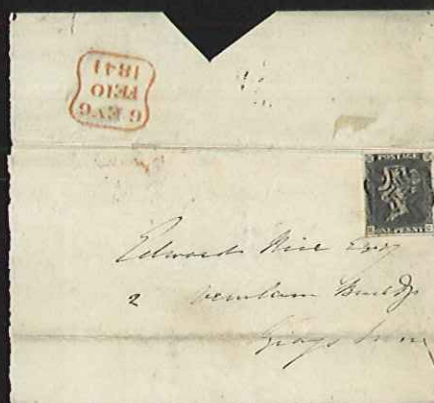 6.EV.6
FE10
1841
POSTAGE
ONE PENNY
Edward Esqr
2 Verulam Buildgs
Grays Inn